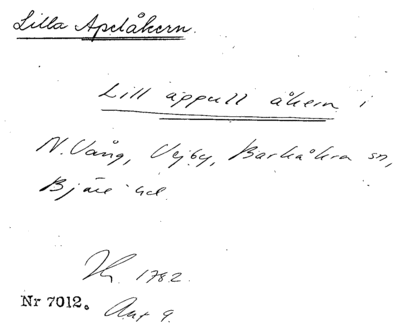 Lilla Apelåkern.
Lill äppull åkern i
N. Vång, Vejby, Barkåkra sn,
Bjäre hd.
1782.
Nr 7012. Akt 9.